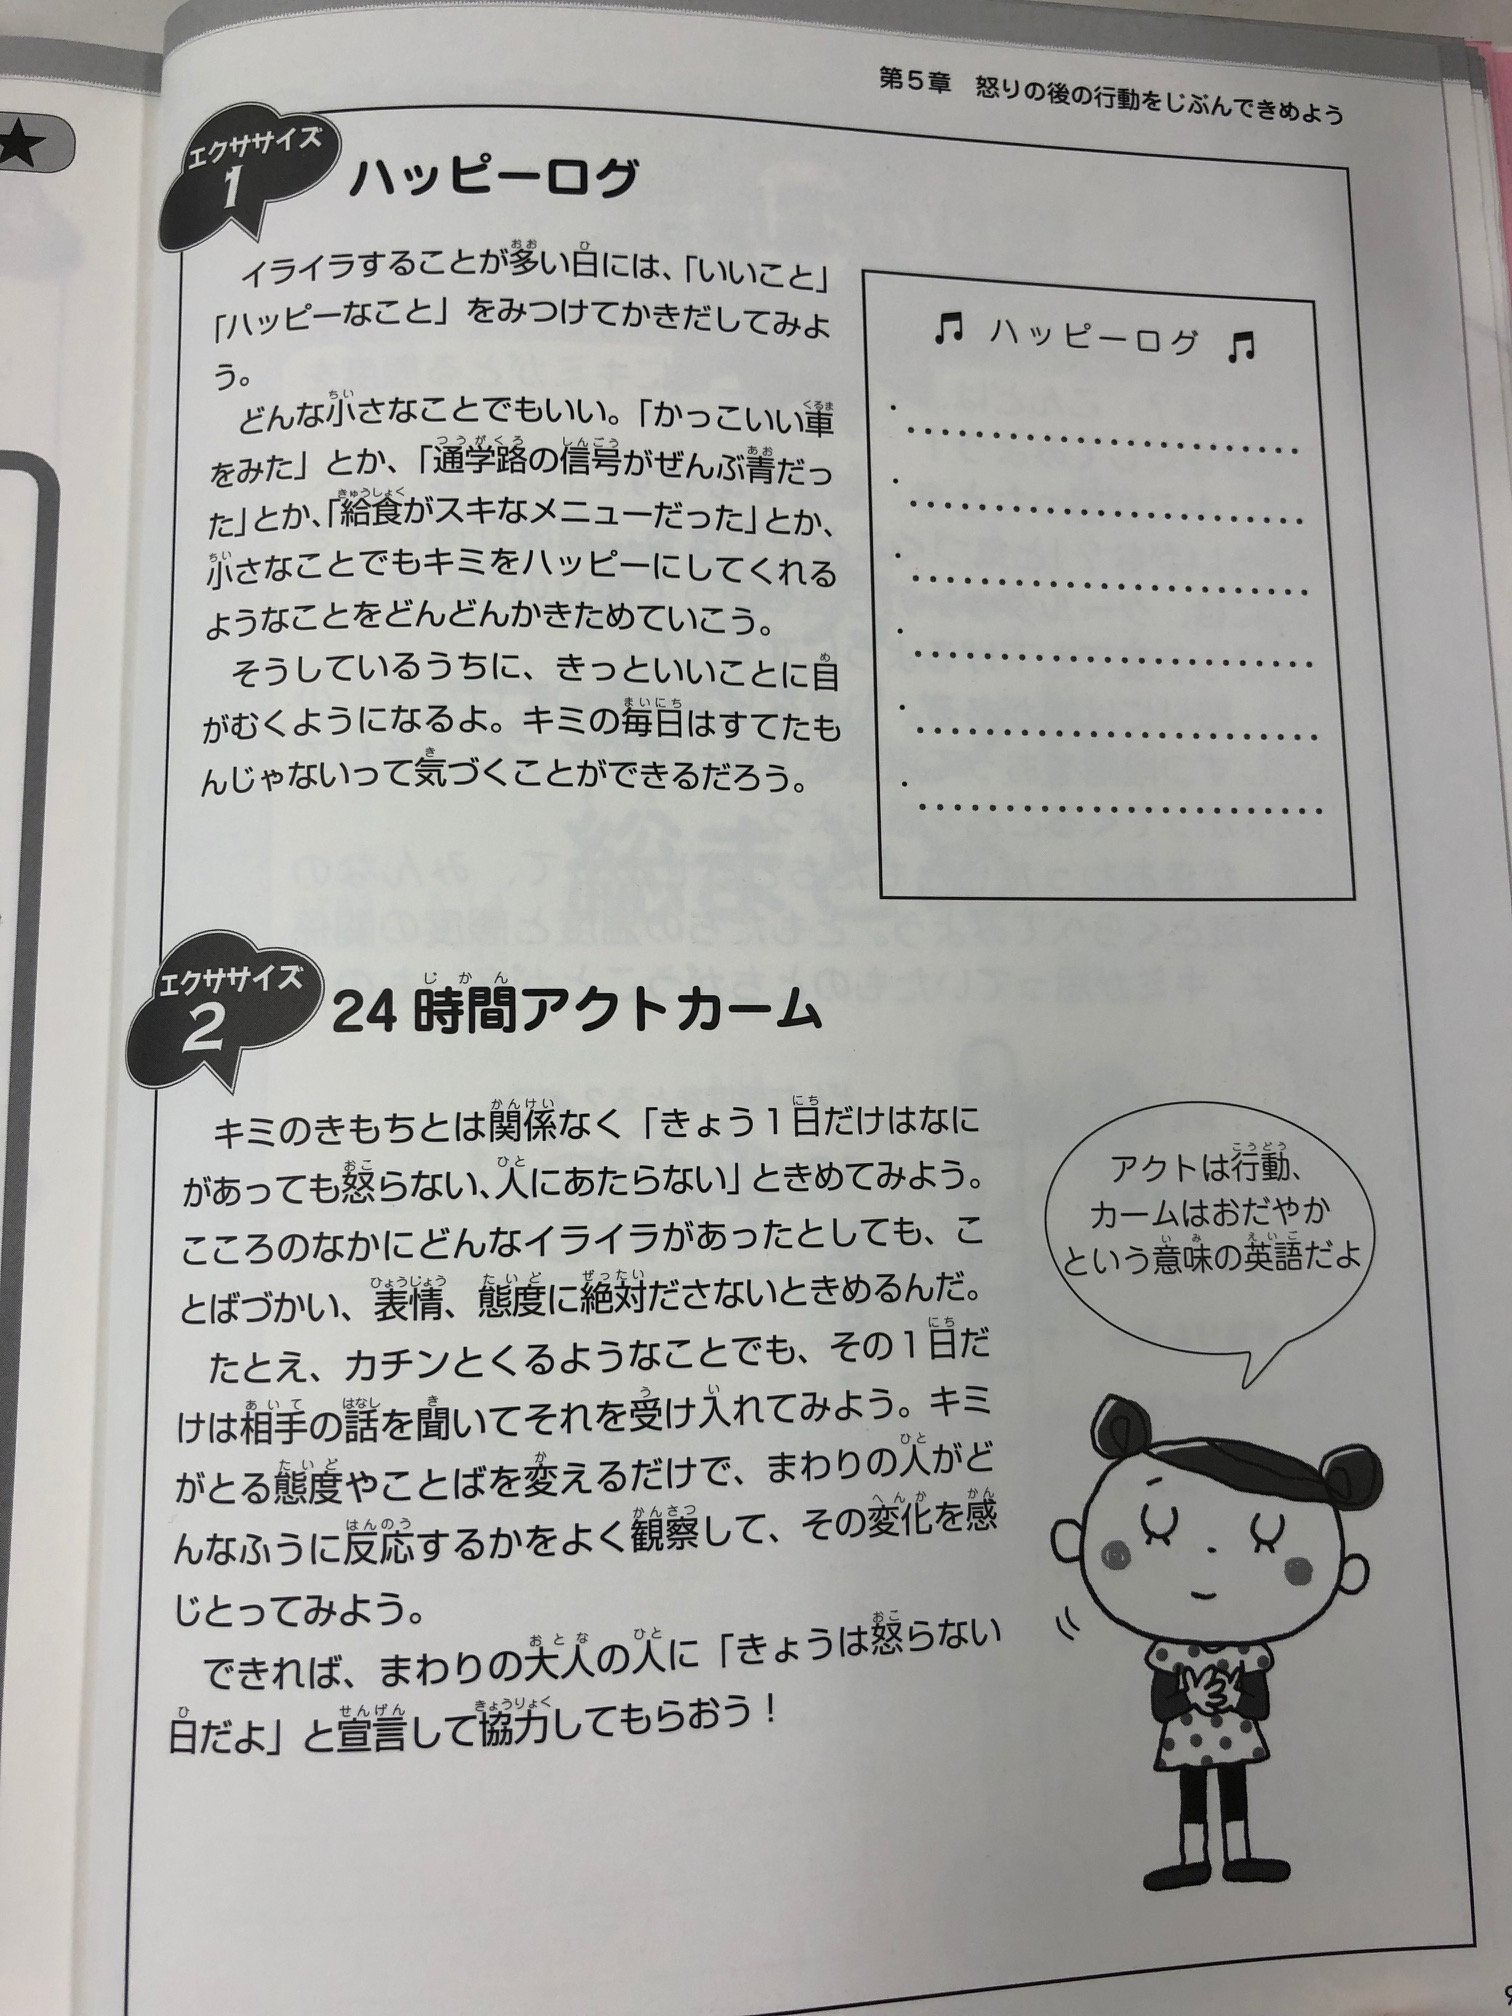 第5章　怒りの後の行動をじぶんできめよう
エクササイズ
1
ハッピーログ
イライラすることが多い日には、「いいこと」
「ハッピーなこと」をみつけてかきだしてみよ
う。
どんな小さなことでもいい。「かっこいい車
をみた」とか、「通学路の信号がぜんぶ青だっ
た」とか、「給食がスキなメニューだった」とか、
小さなことでもキミをハッピーにしてくれる
ようなことをどんどんかきためていこう。
そうしているうちに、きっといいことに目
がむくようになるよ。キミの毎日はすてたも
んじゃないって気づくことができるだろう。
♫ ハッピーログ ♫
エクササイズ
2
24時間アクトカーム
キミのきもちとは関係なく「きょう1日だけはなに
があっても怒らない、人にあたらない」ときめてみよう。
こころのなかにどんなイライラがあったとしても、こ
とばづかい、表情、態度に絶対ださないときめるんだ。
たとえ、カチンとくるようなことでも、その1日だ
けは相手の話を聞いてそれを受け入れてみよう。キミ
がとる態度やことばを変えるだけで、まわりの人がど
んなふうに反応するかをよく観察して、その変化を感
じとってみよう。
できれば、まわりの大人の人に「きょうは怒らない
日だよ」と宣言して協力してもらおう！
アクトは行動、
カームはおだやか
という意味の英語だよ